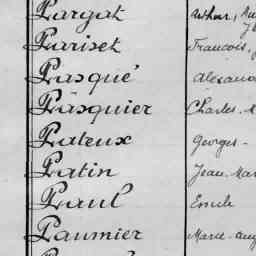 Pargat Arthur,
Pariset François,
Pasqué Alexand
Pasquier Charles. M
Pateux Georges -
Patin Jean. Mar
Paul Emile
Paumier Marie-aug